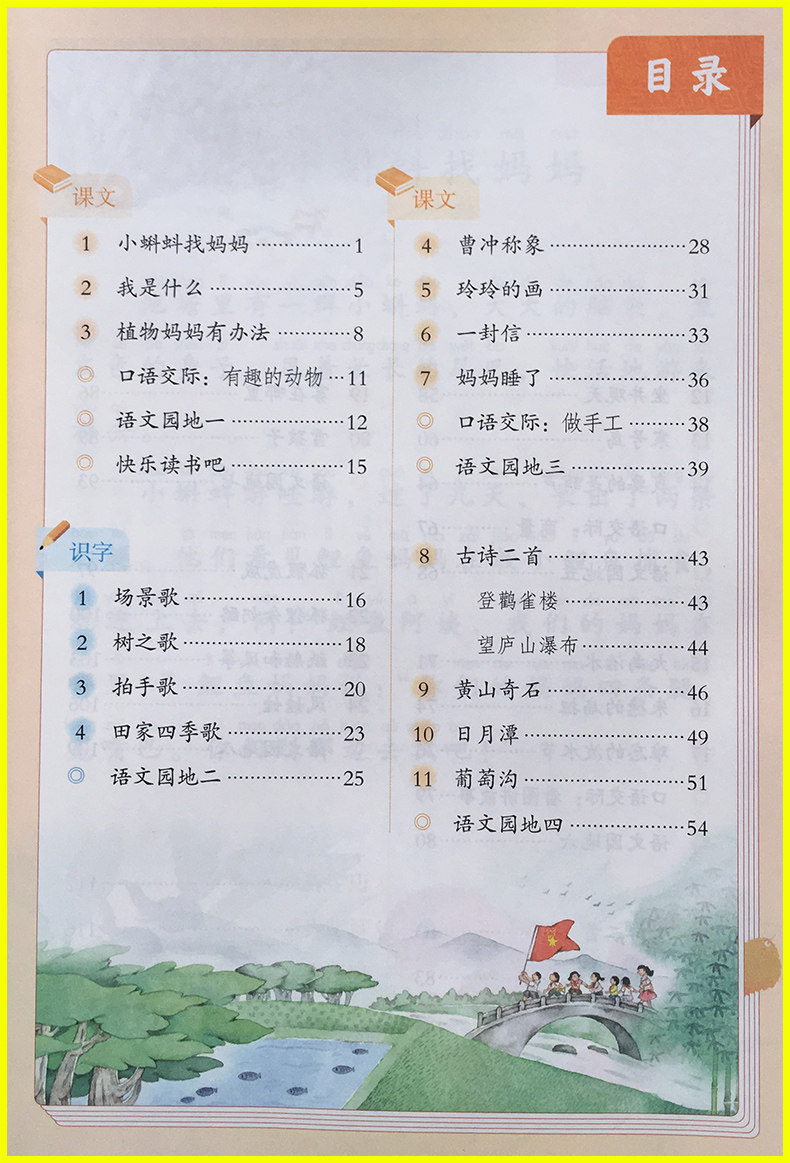 目录
课文
1 小蝌蚪找妈妈 ……………… 1
2 我是什么 ……………… 5
3 植物妈妈有办法 ……………… 8
◎ 口语交际：有趣的动物 … 11
◎ 语文园地一 ……………… 12
◎ 快乐读书吧 ……………… 15
识字
1 场景歌 ……………… 16
2 树之歌 ……………… 18
3 拍手歌 ……………… 20
4 田家四季歌 ……………… 23
◎ 语文园地二 ……………… 25
课文
4 曹冲称象 ……………… 28
5 玲玲的画 ……………… 31
6 一封信 ……………… 33
7 妈妈睡了 ……………… 36
◎ 口语交际：做手工 ……… 38
◎ 语文园地三 ……………… 39
8 古诗二首 ……………… 43
登鹳雀楼 ……………… 43
望庐山瀑布 ……………… 44
9 黄山奇石 ……………… 46
10 日月潭 ……………… 49
11 葡萄沟 ……………… 51
◎ 语文园地四 ……………… 54